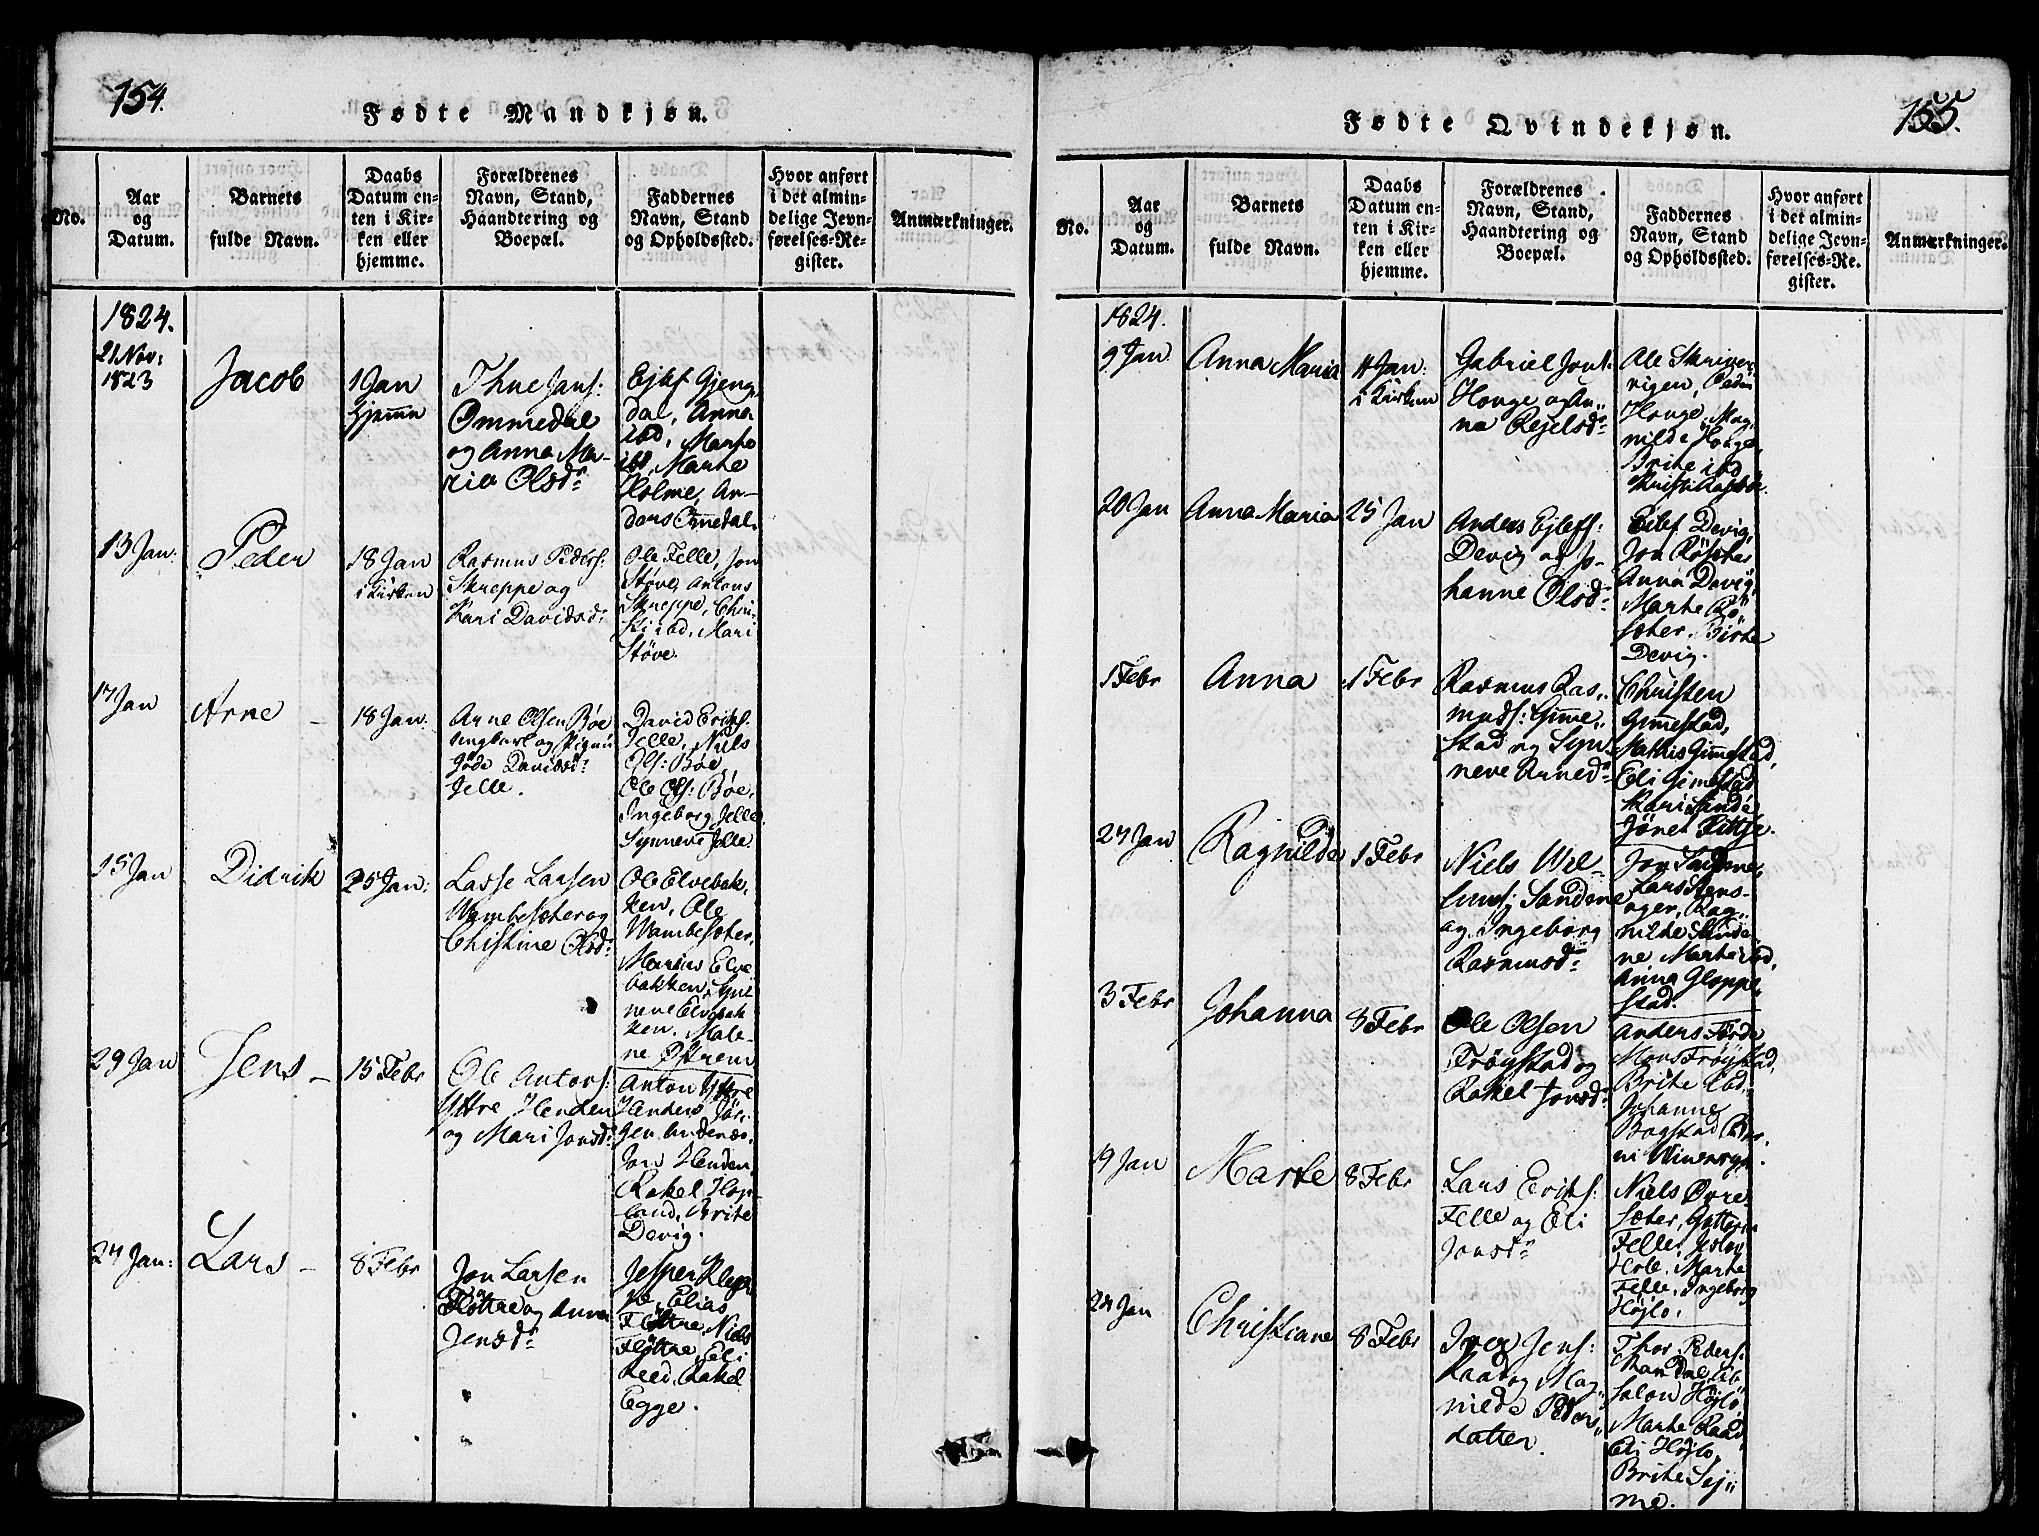 154.
Fødte Mandkjøn.
No.
Aar
og
Datum.
Barnets
fulde Navn.
Daabs
Datum en-
ten i Kir-
ken eller
hjemme.
Forældrenes
Navn, Stand,
Haandtering og
Boepæl.
Faddernes
Navn, Stand
og Opholdssted.
Hvor anført
i det almin-
delige Jevn-
førelses-Re-
gister.
Anmærkninger.
1824.
21 Nov:
1823
Jacob
1 Jan
hjemme
Thue Jans:
Ommedal
og Anna Ma-
ria Olsdr
Ejlef Gjeng
dal, Anna
ibd, Marthe
ibd, Marthe
Holme, An-
ders Omedal.
13 Jan:
Peder
18 Jan
i Kirken
Rasmus Peders:
Skreppe og
Kari Davidsdr
Ole Felle, Jon
Støve, Antons
Skreppe, Chri-
 ibd, Mari
Støve.
17 Jan
Arne –
18 Jan.
Arne Olsen Bøe
Ungkarl og Pigen
 Davidsdr
Felle.
David Eriks:
Felle, Niels
Ols: Bøe,
Ole Ols: Bøe,
Ingeborg Felle
Synneve Felle
15 Jan
Didrik
25 Jan:
Lasse Larsen
Wambesæter og
Christine Olsdr
Ole Elvebak-
ken, Ole
Wambesæter,
Marius Elve
bakken, Syn
neve Elvebak
ken, Male-
ne Østrem
29 Jan
Jens –
15 Febr
Ole Antons:
Yttre Henden
og Mari Jonsdr
Anton Yttre
Henden, Jør-
gen Andenæs,
Jon Henden,
Rakel Hop-
land, Brite
Devig.
24 Jan:
Lars –
8 Febr
Jon Larsen
Fløttre og Anna
Jensdr
Jesper Klep
pe, Elias
Fløttre, Niels
Fløttre, Eli
Reed, Rakel
Egge.
155.
Fødte Qvindekjøn.
No.
Aar
og
Datum.
Barnets
fulde Navn.
Daabs
Datum en-
ten i Kir-
ken eller
hjemme.
Forældrenes
Navn, Stand,
Haandtering og
Boepæl.
Faddernes
Navn, Stand
og Opholdssted.
Hvor anført
i det almin-
delige Jevn-
førelses-Re-
gister.
Anmærkninger.
1824.
9 Jan
Anna Maria
11 Jan:
i Kirken
Gabriel Jons:
Houge og An-
na Rejelsdr
Ole Skriver-
vigen, Peder
Houge, Mag-
nilde Houge,
Brite ibd
20 Jan
Anna Maria
25 Jan
Anders Ejlefs:
Devig og Jo-
hanne Olsdr
Eilef Devig,
Jon Røsæter
Anna Devig,
Marte Rø-
sæter, Birte
Devig.
1 Febr
Anna
1 Febr
Rasmus Ras-
muss: Gimme-
stad og Syn-
neve Arnedr
Christen
Gimmestad,
Mathis Gimmestad,
Eli Gimestad
Kari Sande
27 Jan
Ragnilde
1 Febr
Niels Wil-
lums: Sandene
og Ingeborg
Rasmusdr
Jon Sandene,
Lars Stens-
ager, Rag-
nilde Sande-
ne, Marte ibd,
Anna Gloppe-
stad.
3 Febr
Johanna
8 Febr
Ole Olsen
Frøystad og
Rakel Jonsdr
Anders Førde
Mons Frøystad,
Brite ibd,
Johanne
Bogstad,
19 Jan
Marte
8 Febr
Lars Eriks:
Felle og Eli
Jonsdr
Niels Øvre-
sæter, Guttorm
Felle,
Hole, Marte
Felle, Ingeborg
Højlo.
24 Jan
Christiane
8 Febr
Iver Jens:
Raad og Mag-
nilde Peders-
datter.
Thor Peders:
Mandal, Ab-
salon Højlo,
Marte Raad,
Eli Højlo,
Brite Sej-
me.